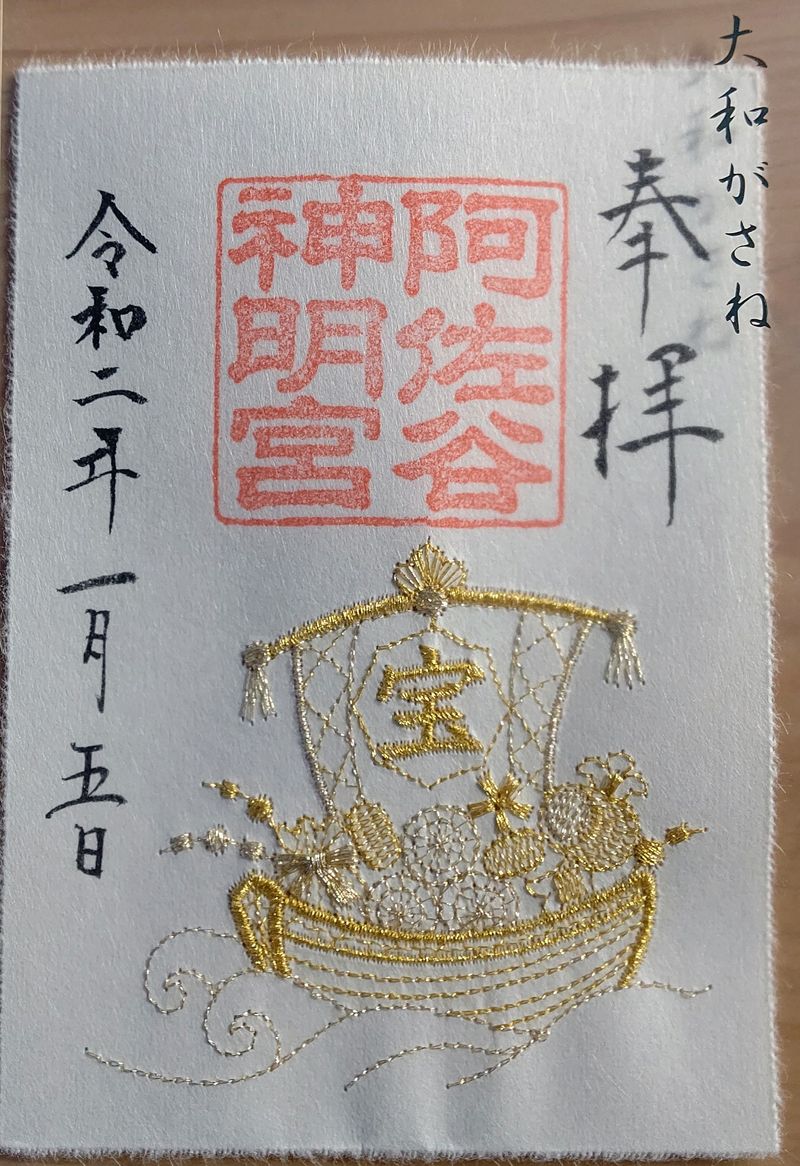 大和がさね
奉拝
阿佐谷
神明宮
宝
令和二年一月五日